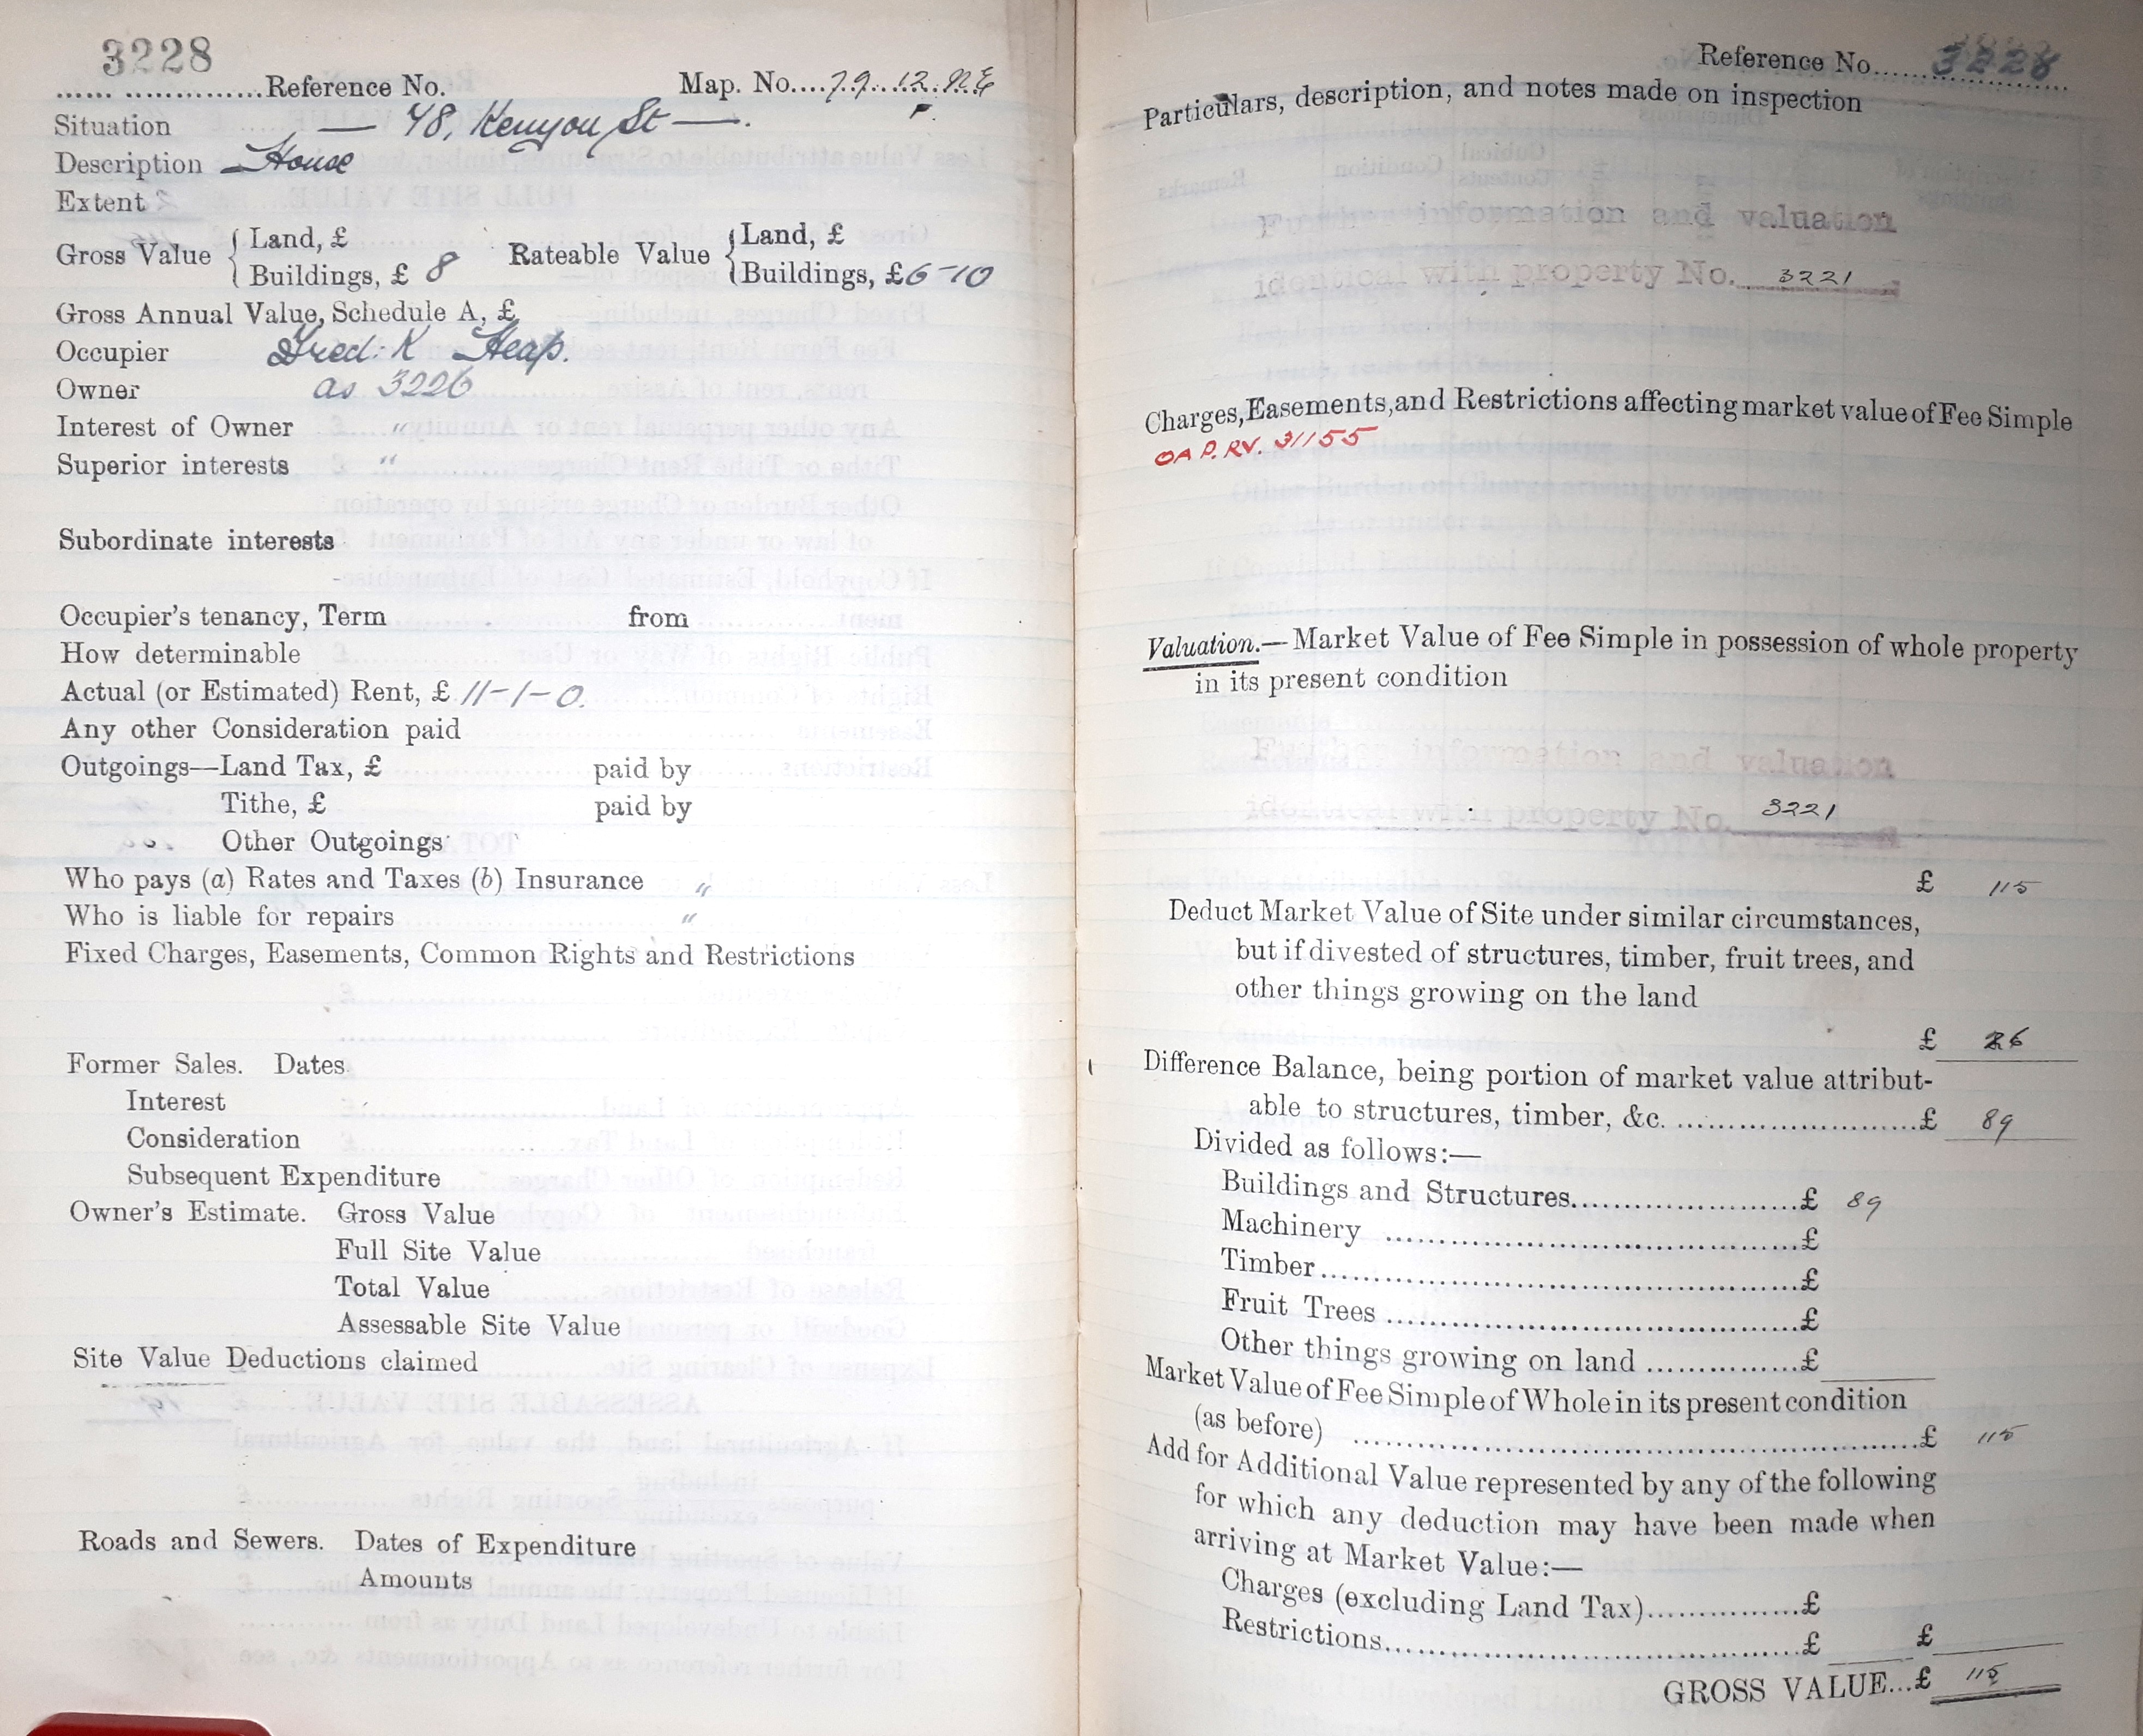 3228
Reference No. Map. No. 79.12.N.E
Situation — 48, Kenyon St —.
Description House
Extent
Gross Value { Land, £ Rateable Value { Land, £
Buildings, £ 8 Buildings, £ 6-10
Gross Annual Value, Schedule A, £
Occupier Fred: K Heap.
Owner as 3226
Interest of Owner "
Superior interests "
Subordinate interests
Occupier's tenancy, Term from
How determinable
Actual (or Estimated) Rent, £ 11-1-0.
Any other Consideration paid
Outgoings—Land Tax, £ paid by
Tithe, £ paid by
Other Outgoings
Who pays (a) Rates and Taxes (b) Insurance "
Who is liable for repairs "
Fixed Charges, Easements, Common Rights and Restrictions
Former Sales. Dates
Interest
Consideration
Subsequent Expenditure
Owner's Estimate. Gross Value
Full Site Value
Total Value
Assessable Site Value
Site Value Deductions claimed
Roads and Sewers. Dates of Expenditure
Amounts
Reference No. 3228
Particulars, description, and notes made on inspection
Further information and valuation
identical with property No. 3221
Charges, Easements, and Restrictions affecting market value of Fee Simple
OA P. RV. 31155
Valuation.—Market Value of Fee Simple in possession of whole property
in its present condition
Further information and valuation
identical with property No. 3221
£ 115
Deduct Market Value of Site under similar circumstances,
but if divested of structures, timber, fruit trees, and
other things growing on the land
£ 26
Difference Balance, being portion of market value attribut-
able to structures, timber, &c. ........................£ 89
Divided as follows:—
Buildings and Structures........................£ 89
Machinery ........................£
Timber........................£
Fruit Trees ........................£
Other things growing on land ...............£
Market Value of Fee Simple of Whole in its present condition
(as before) ........................£ 115
Add for Additional Value represented by any of the following
for which any deduction may have been made when
arriving at Market Value:—
Charges (excluding Land Tax)...............£
Restrictions........................£ £
GROSS VALUE...£ 115